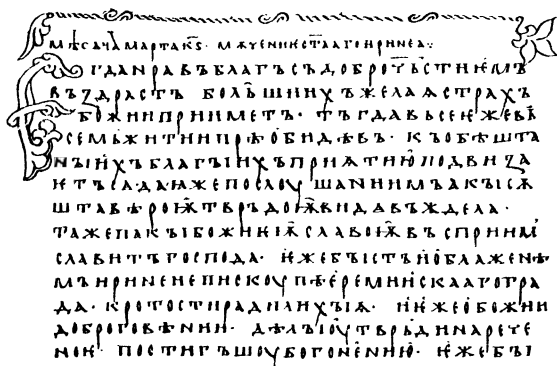 мѣсѧца марта кѕ· мѫчениѥ стааго иринеа:
Егда нравъ благъ съ доброчьстиѥмъ
въздрастъ болъшиихъ желаѧ страхъ
божии прииметъ· тъгда вьсе ꙗже въ
семь житии прѣобидѣвъ· къ обѣшта
ныихъ благыихъ приѧтию подвиза
ѥтъ сѧ· да ꙗже послоушаниимъ акы сѫ
шта вѣроѭ тврьдоѭ видѣ въждела·
таже пакы божиѥѭ славоѭ въсприимъ
славитъ господа· ѥже быстъ и о блаженѣ
мь иринеи епискоупѣ сремиискааго гра
да· кротости ради лихыѧ· и ꙗже о божии
доброговѣнии· дѣлы оутврьди нарече
ноѥ· постигъшоу бо гонению· ѥже бы